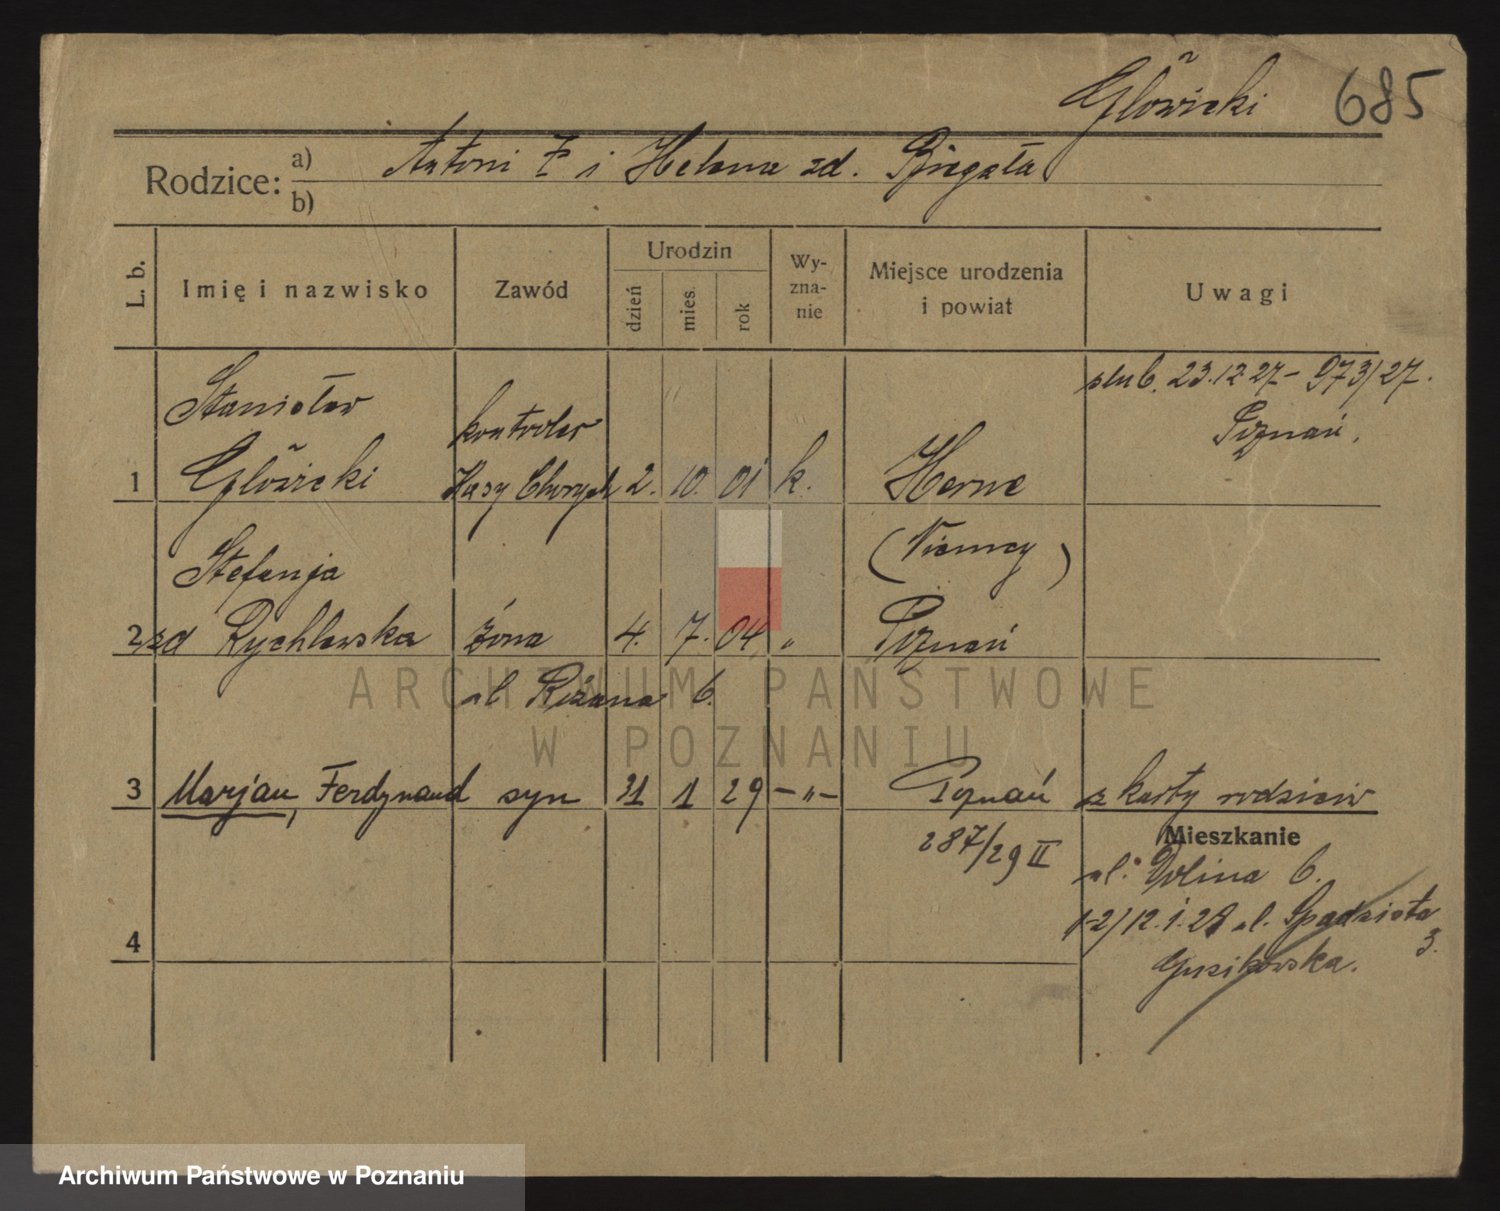 Głowicki 685
Rodzice: a) Antoni i Helena zd. Biegała
b)
L. b. Imię i nazwisko Zawód Urodzin dzień mies. rok Wy-zna-nie Miejsce urodzenia i powiat Uwagi
ślub. 23.12.27 – 973/27.
Poznań.
Stanisław kontroler
1 Głowicki Kasy Chorych 2. 10. 01 k. Herne
(Niemcy)
Stefanja
2 zd Rychlewska żona 4. 7. 04 " Poznań
ul. Różana 6.
3 Marjan, Ferdynand syn 21 1 29 – " – Poznań z karty rodziców
287/29 II
Mieszkanie
ul. Dolina 6.
1-2/12.1.28 ul. Spadzista 3.
4
Guzikowska.
ARCHIWUM PAŃSTWOWE
W POZNANIU
Archiwum Państwowe w Poznaniu